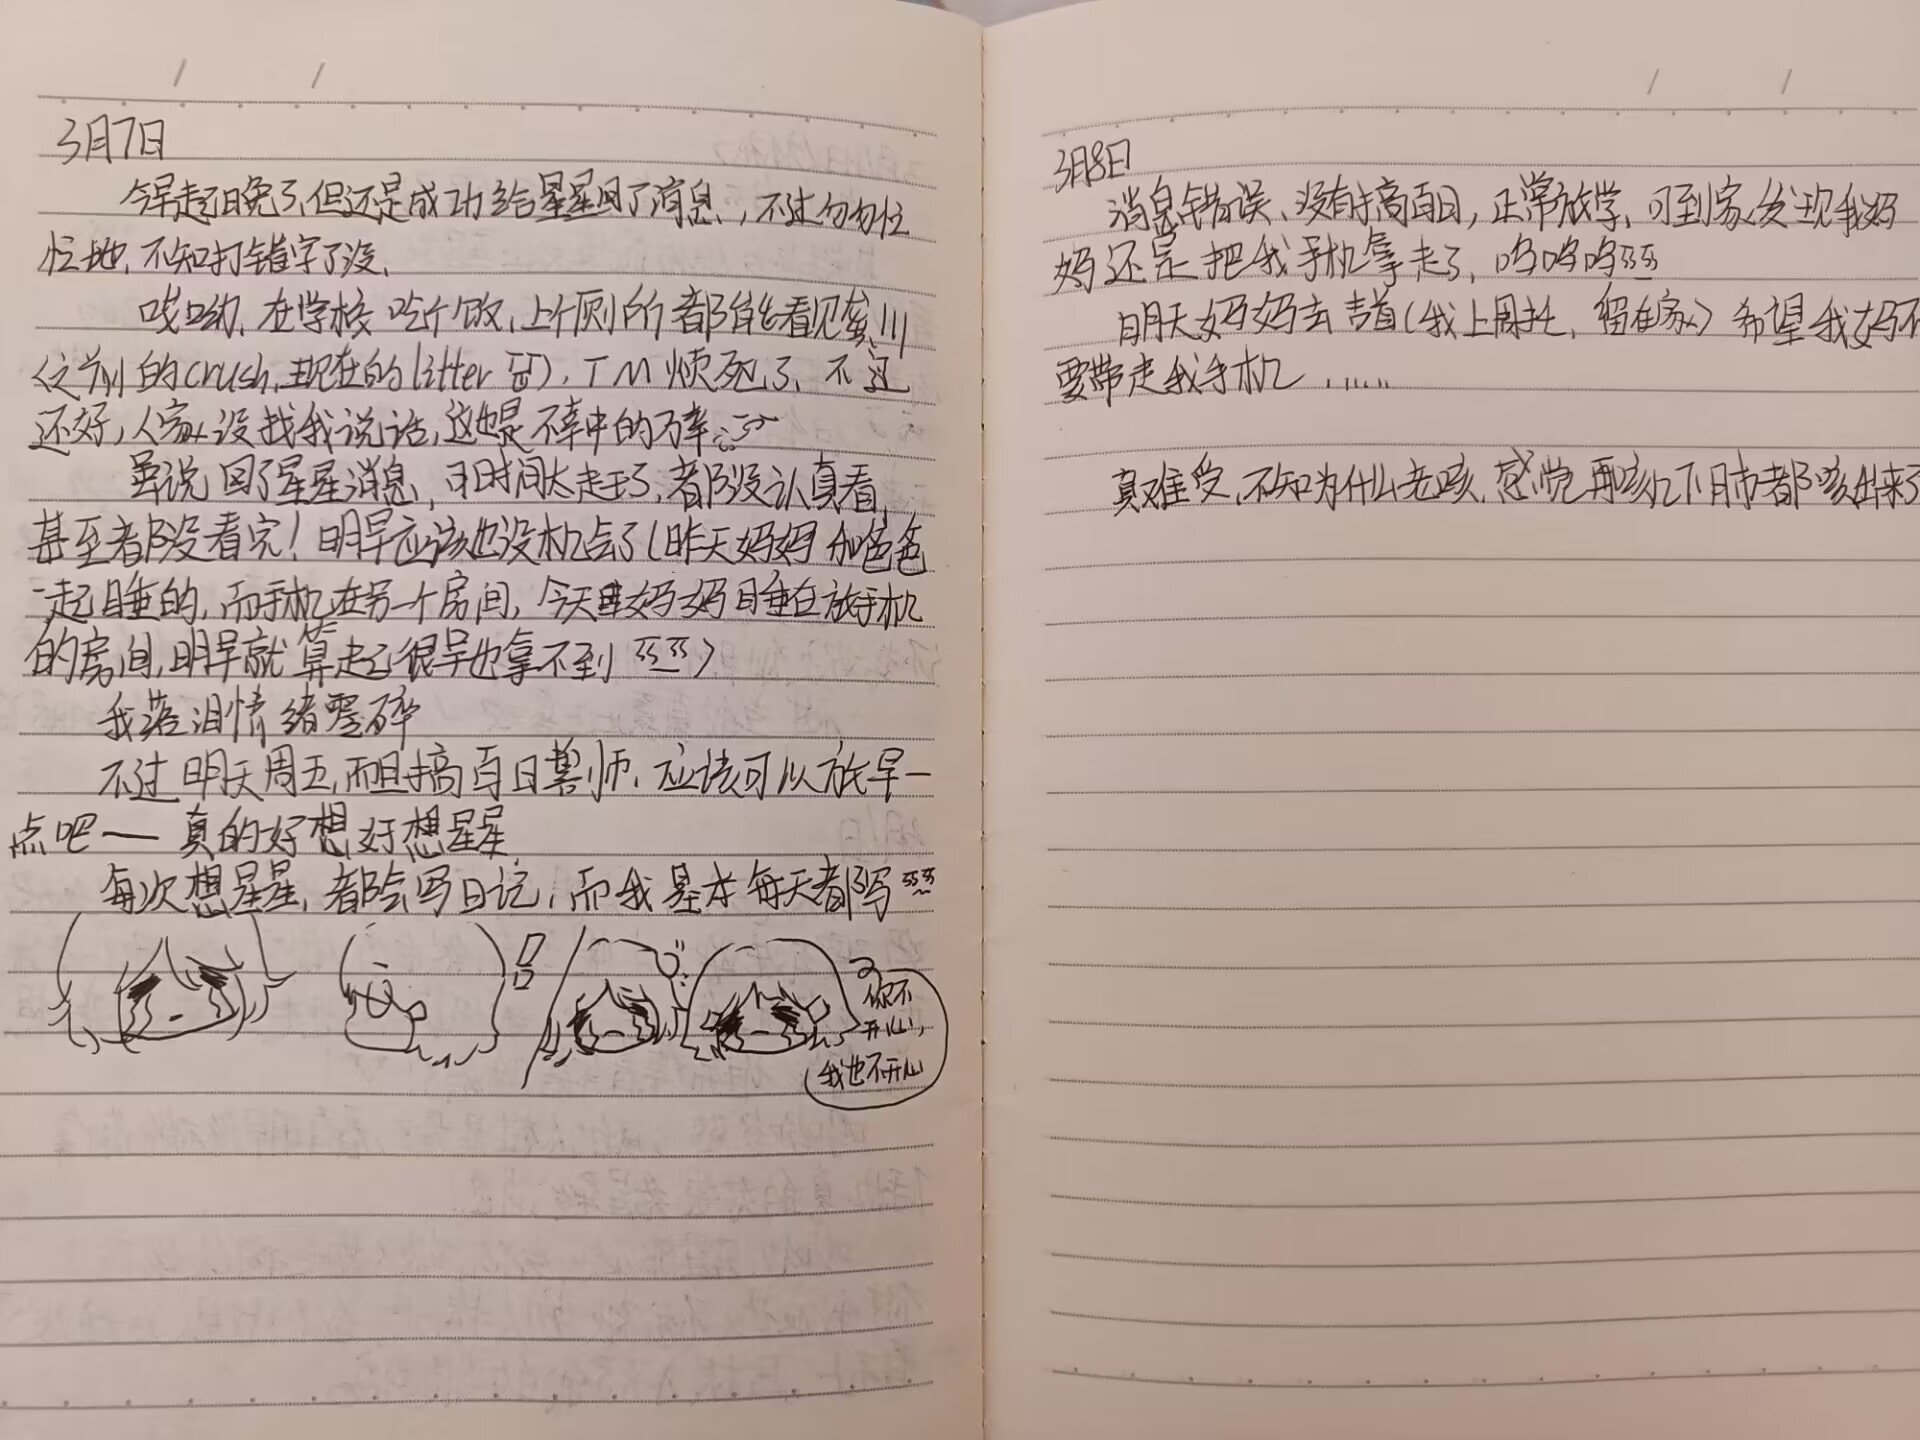 3月7日
今早起晚了,但还是成功给星星回了消息,不过匆匆忙
忙地,不知打错字了没、
哎呦,在学校吃个饭,上个厕所都能看见蜜!!!
(之前的crush,现在的litter 豆),TM烦死了、不过
还好,人家没找我说话,这也是不幸中的万幸
虽说回了星星消息,可时间太赶了,都没认真看,
甚至都没看完!明早应该也没机会了(昨天妈妈和爸爸
一起睡的,而手机在另一个房间,今天妈妈睡在放手机
的房间,明早就算起很早也拿不到)
我落泪情绪零碎
不过明天周五,而且搞百日誓师,应该可以放早一
点吧——真的好想好想星星
每次想星星,都会写日记,而我基本每天都写
你不
开心,
我也不开心
3月8日
消息错误、没有搞百日,正常放学、可到家发现我妈
妈还是把我手机拿走了,呜呜呜
明天妈妈去吉首(我上周托,留在家)希望我妈不
要带走我手机......
真难受,不知为什么老咳,感觉再咳几下肺都咳出来了